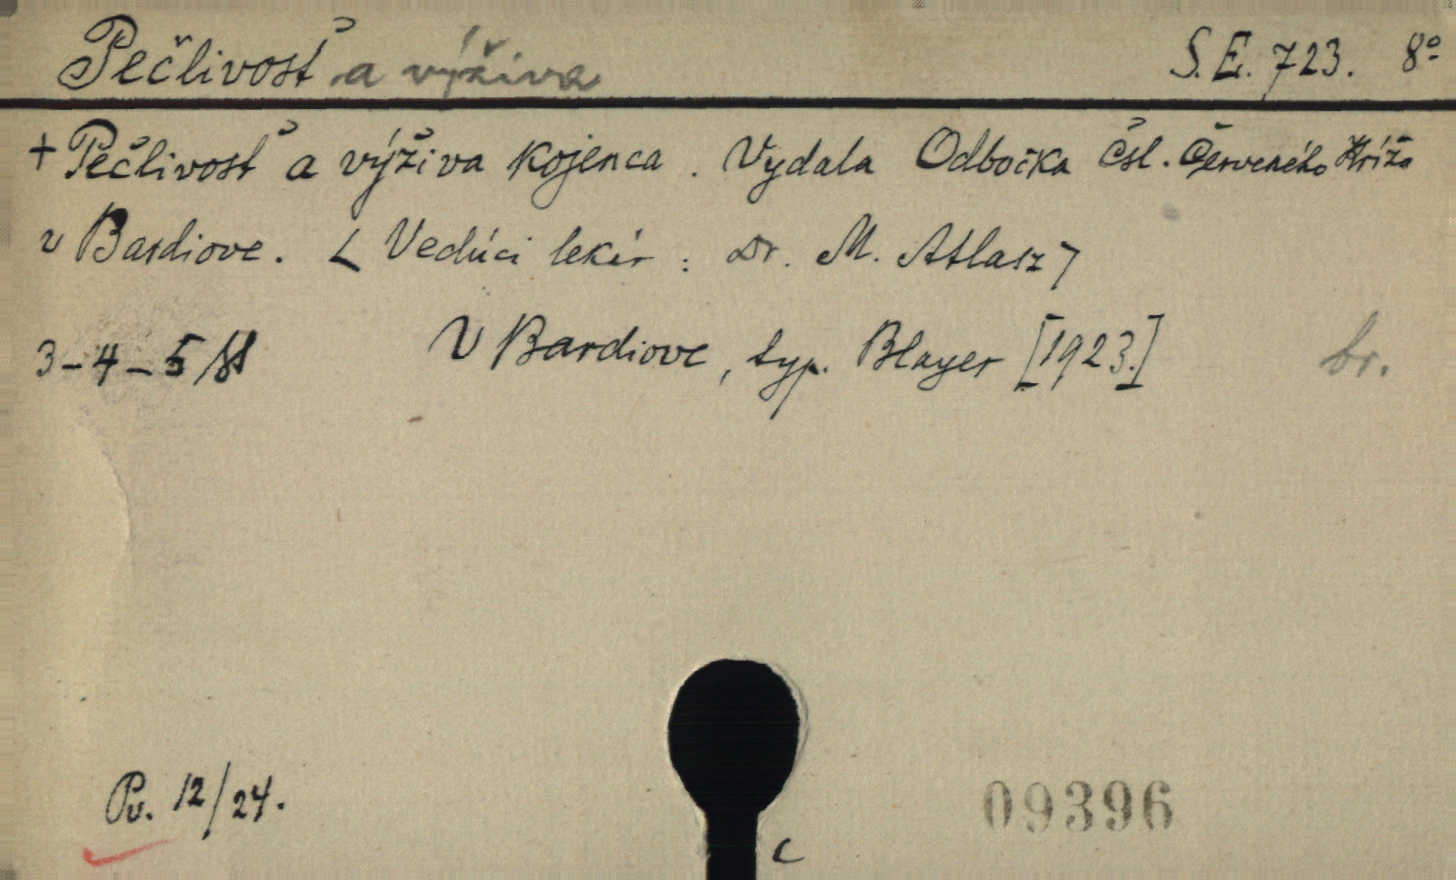 Pečlivosť a výživa S.E. 723. 8º
+ Pečlivosť a výživa kojenca. Vydala Odbočka Čsl. Červeného Kríža
v Bardiove. < Vedúci lekár: Dr. M. Atlasz >
3-4-5
V Bardiove, typ. Blayer [1923.] br.
Pv. 12/24.
09396
c